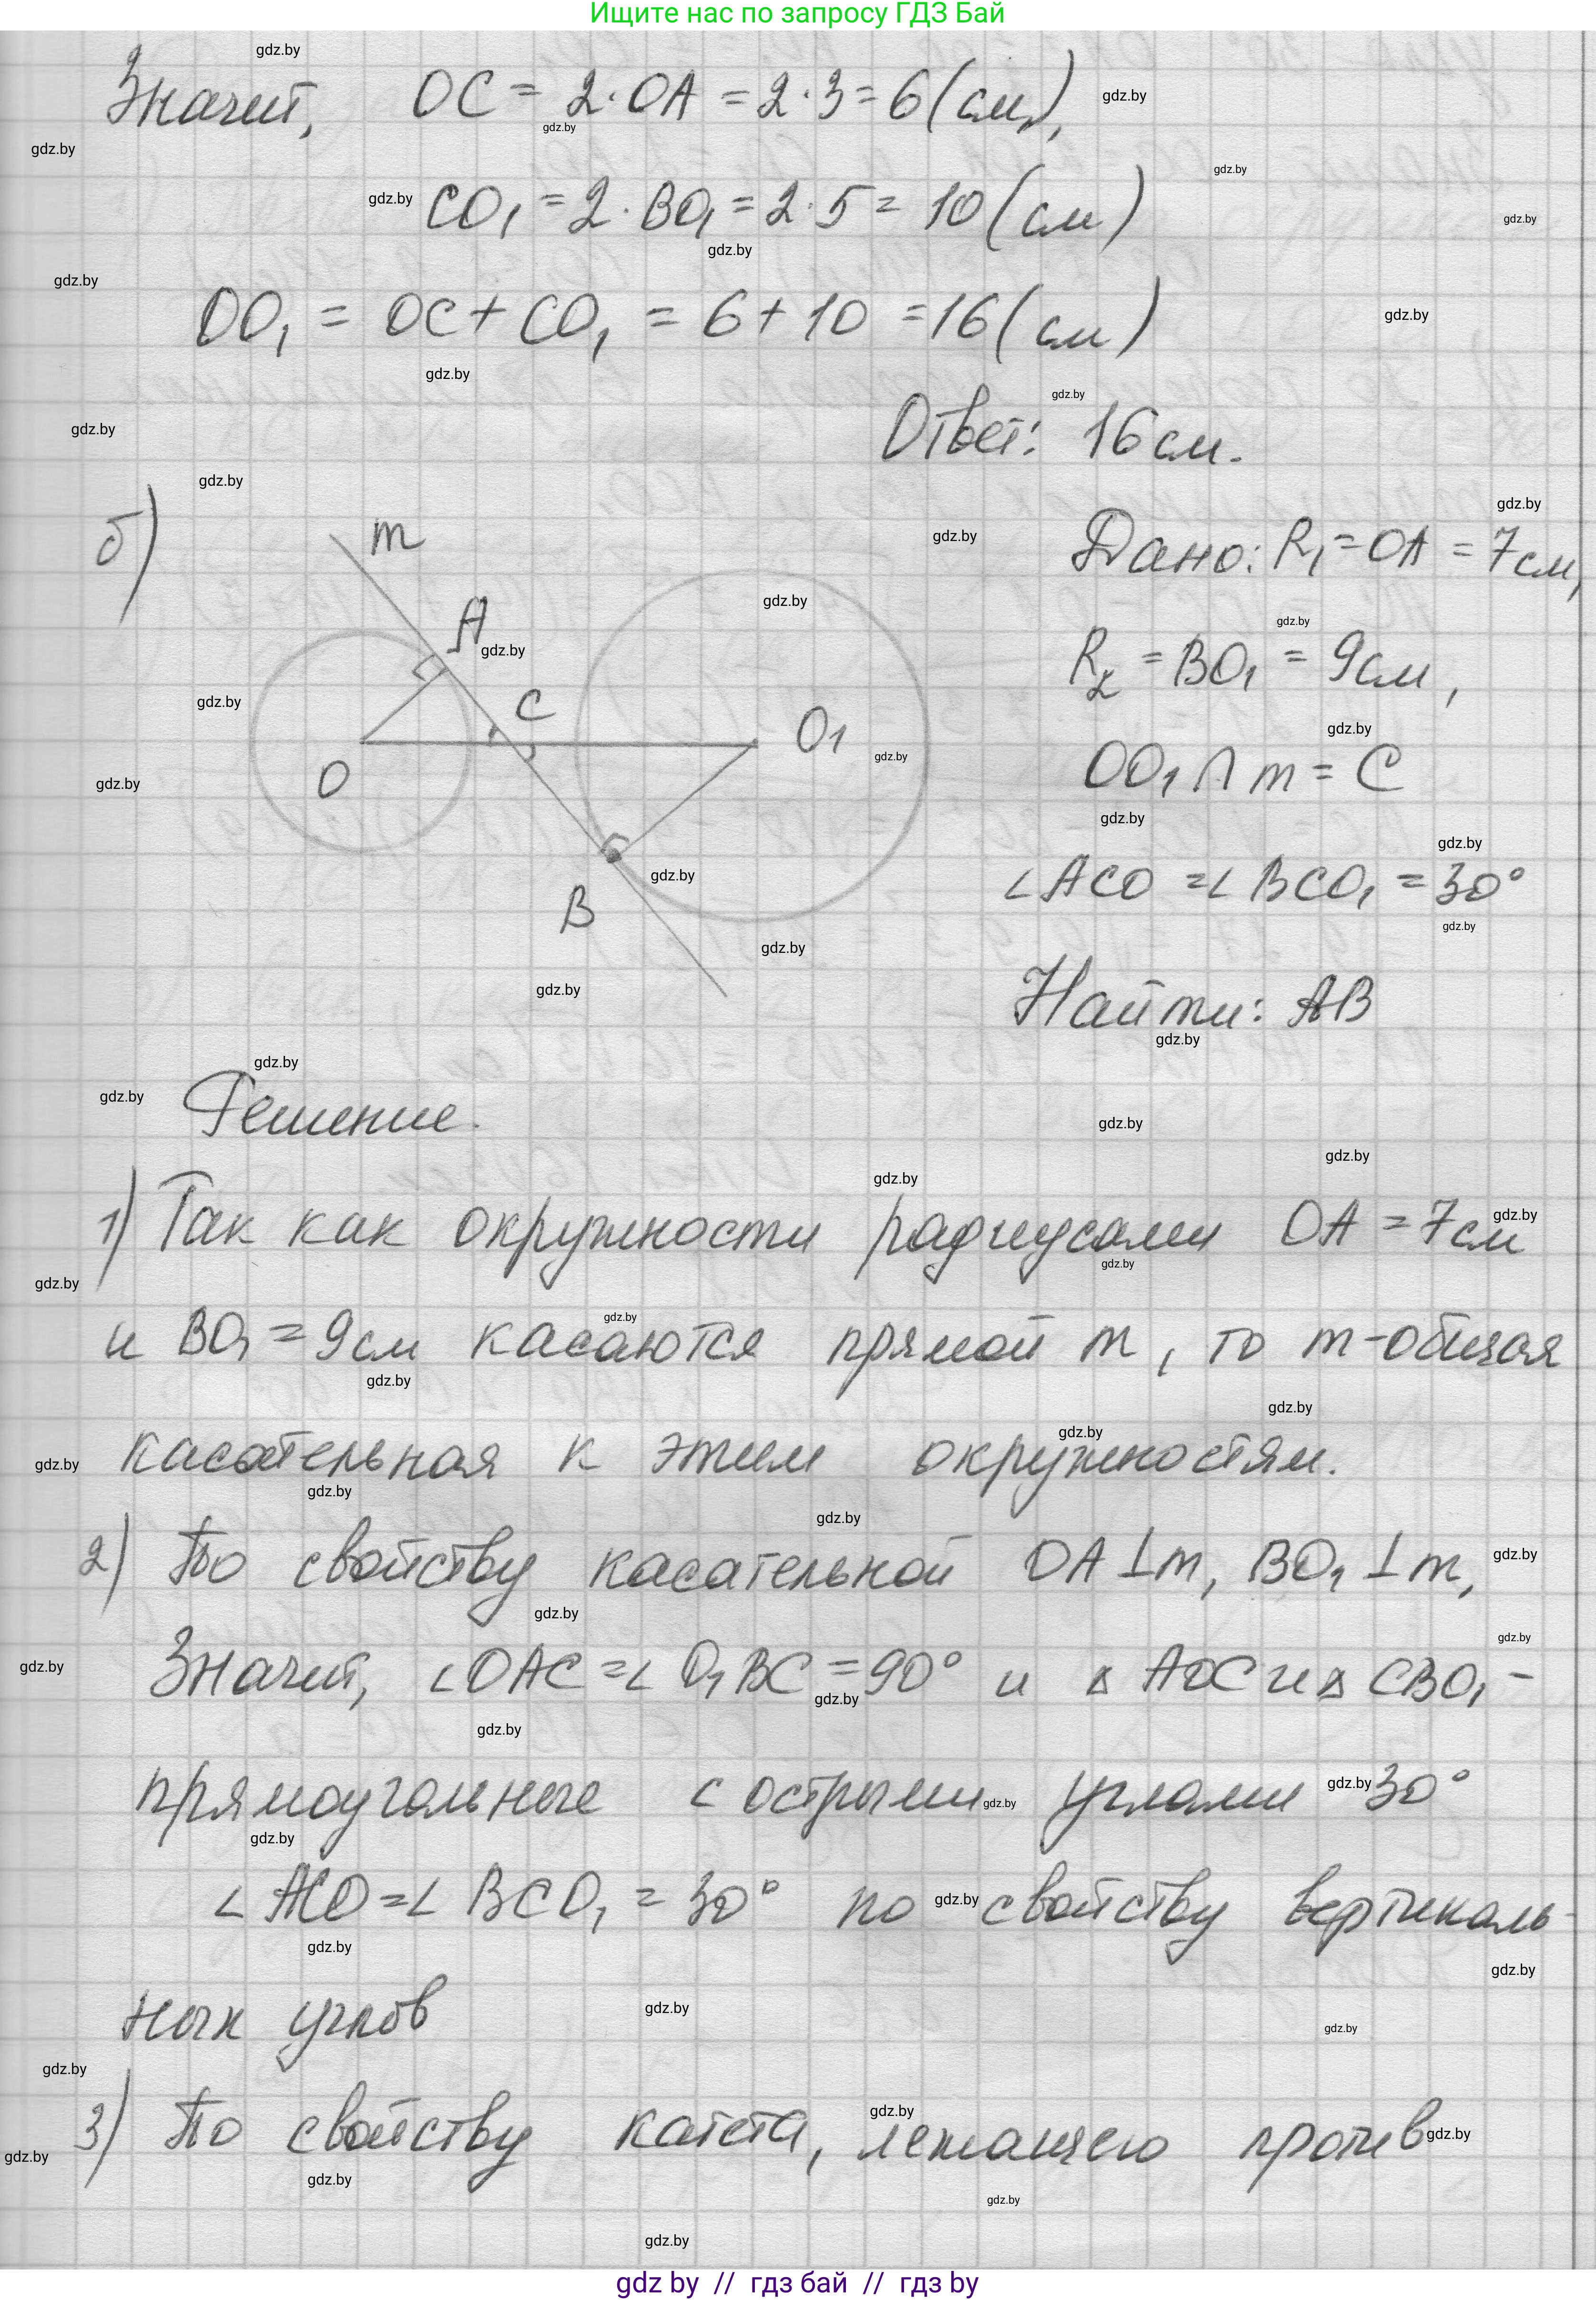 Ищите нас по запросу ГДЗ Бай
Значит, OC = 2·OA = 2·3 = 6 (см),
CO₁ = 2·BO₁ = 2·5 = 10 (см)
OO₁ = OC + CO₁ = 6 + 10 = 16 (см)
Ответ: 16 см.
б)
m
A
C
O₁
O
B
Дано: R₁ = OA = 7 см,
R₂ = BO₁ = 9 см,
OO₁ ∩ m = C
∠ACO = ∠BCO₁ = 30°
Найти: AB
Решение.
1) Так как окружности радиусами OA = 7 см
и BO₁ = 9 см касаются прямой m, то m - общая
касательная к этим окружностям.
2) По свойству касательной OA ⊥ m, BO₁ ⊥ m,
Значит, ∠OAC = ∠O₁BC = 90° и △AOC и △CBO₁ -
прямоугольные с острыми углами 30°
∠ACO = ∠BCO₁ = 30° по свойству вертикаль-
ных углов
3) По свойству катета, лежащего против
gdz by // гдз бай // гдз by